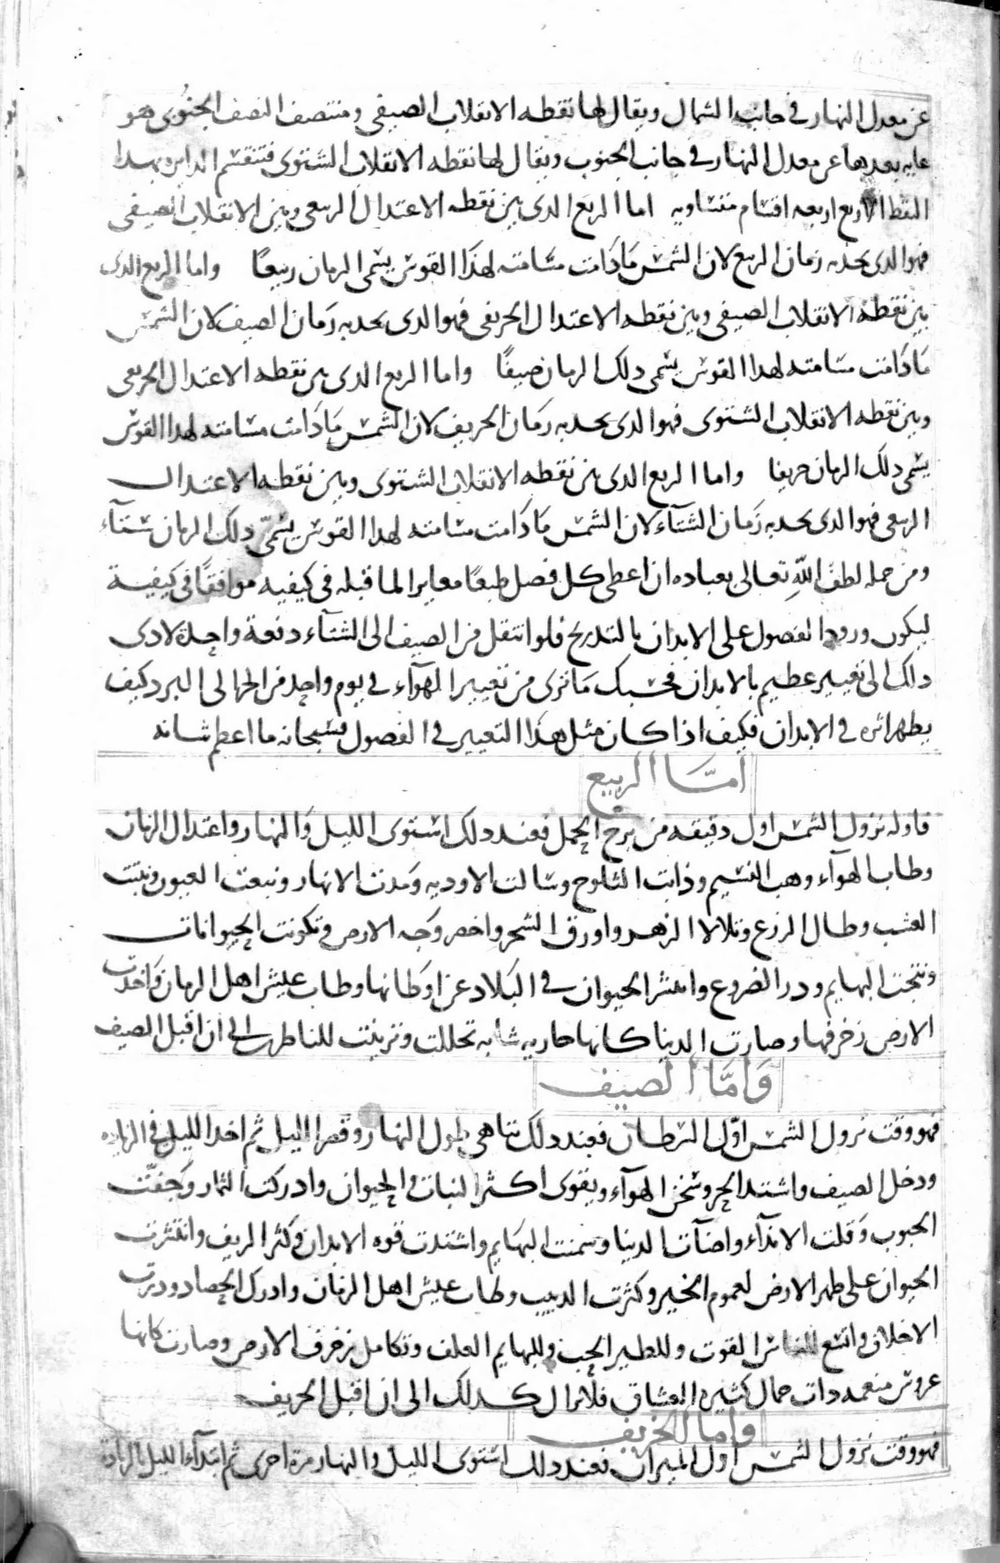 عن معدل النهار في جانب الشمال ويقال لها نقطه الانقلاب الصيفي ومنتصف النصف الجنوبي هو
غايه بعدها عن معدل النهار في جانب الجنوب ويقال لها نقطه الانقلاب الشتوي فتنقسم الدايره بهذا
النقط الاربع اربعه اقسام متساويه اما الربع الذي بين نقطه الاعتدال الربيعي وبين الانقلاب الصيفي
فهو الذي يحد به زمان الربيع لان الشمس مَا دَامت مسَامته لهذَا القوس يسمى الزمان ربيعًا واما الربع الذي
بين نقطة الانقلاب الصيفي وبين نقطه الاعتدال الخريفي فهو الذي يحد به زمان الصيف لان الشمس
مَا دَامت مسَامته لهذا القوس يسمى ذلك الزمان صيفًا واما الربع الذي بين نقطه الاعتدال الخريفي
وبين نقطه الانقلاب الشتوي فهو الذي يحد به زمان الخريف لان الشمس مَا دَامت مسَامته لهذا القوس
يسمى ذلك الزمان خريفا واما الربع الذي بين نقطه الانقلاب الشتوي وبين نقطه الاعتدال
الربيعي فهو الذي يحد به زمان الشتآء لان الشمس مَا دَامت مسَامته لهذا القوس يسمّى ذلك الزمان شتآء
ومن جمله لطف اللّهِ تعالى بعباده ان اعطى كل فصل طبعًا مغايرا لما قبله في كيفيه موافقًا في كيفية
ليكون ورود الفصول على الابدان بالتدريج فلو انتقل من الصيف الى الشتآء دفعة واحدة لادى
ذلك الى تغيير عظيم بالابدان فحسبك مَا ترى من تغيير الهوآء في يوم واحد من الحر الى البرد كيف
يظهر اثره في الابدان فكيف اذا كان مثل هذَا التغيير في الفصول فسبحانه ما اعظم شانه
امَّا الربيع
فاوله نزول الشمس اول دقيقه من برج الحمل فعند ذلك استوى الليل وَالنهار واعتدال الزمان
وطاب الهوآء وهب النسيم وذابت الثلوج وسَالت الاوديه ومَدت الانهار ونبعت العيون ونبتت
العشب وطال الزرع وتلالا الزهر واورق الشجر واخضر وَجه الارض وتكونت الحيوانات
ونتجت البهايم ودر الضروع وانتشر الحيوان في البلاد عن اوطَانها وطاب عيش اهل الزمان وَاخذت
الارض زخرفها وصارت الدنيا كانها جاريه شابه تحللت وتزينت للناظرين الى ان اقبل الصيف
وَامَّا الصيف
فهو وقت نزول الشمس اوّل السرطان فعند ذلك تناهى طول النهار وقصر الليل ثم اخذ الليل في الزياده
ودخل الصيف واشتد الحر وسَخن الهوآء ويقوى اكثر النبات في الحيوان وادركت الثمار وَجَفّت
الحبوب وَقلت الاندآء واضآت الدنيا وسمنت البهايم واشتدت قوه الابدان وكثر الريف وانتشرت
الحيوان على ظهر الارض لعموم الخير وكثرت الدبيب وطاب عيش اهل الزمان وادرك الحصاد ودرت
الاخلاف واتسع للناس القوت وللطير الحب وللبهايم العلف وتكامل زخرف الارض وصارت كانها
عروس منعمه ذات جمال كثيره العشاق فلا تزال كذلك الى ان اقبل الخريف
وَاما الخريف
فهو وقت نزول الشمس اول الميزان فعند ذلك استوى الليل والنهار مرة اخرى ثم ابتدآء الليل بالزيادة